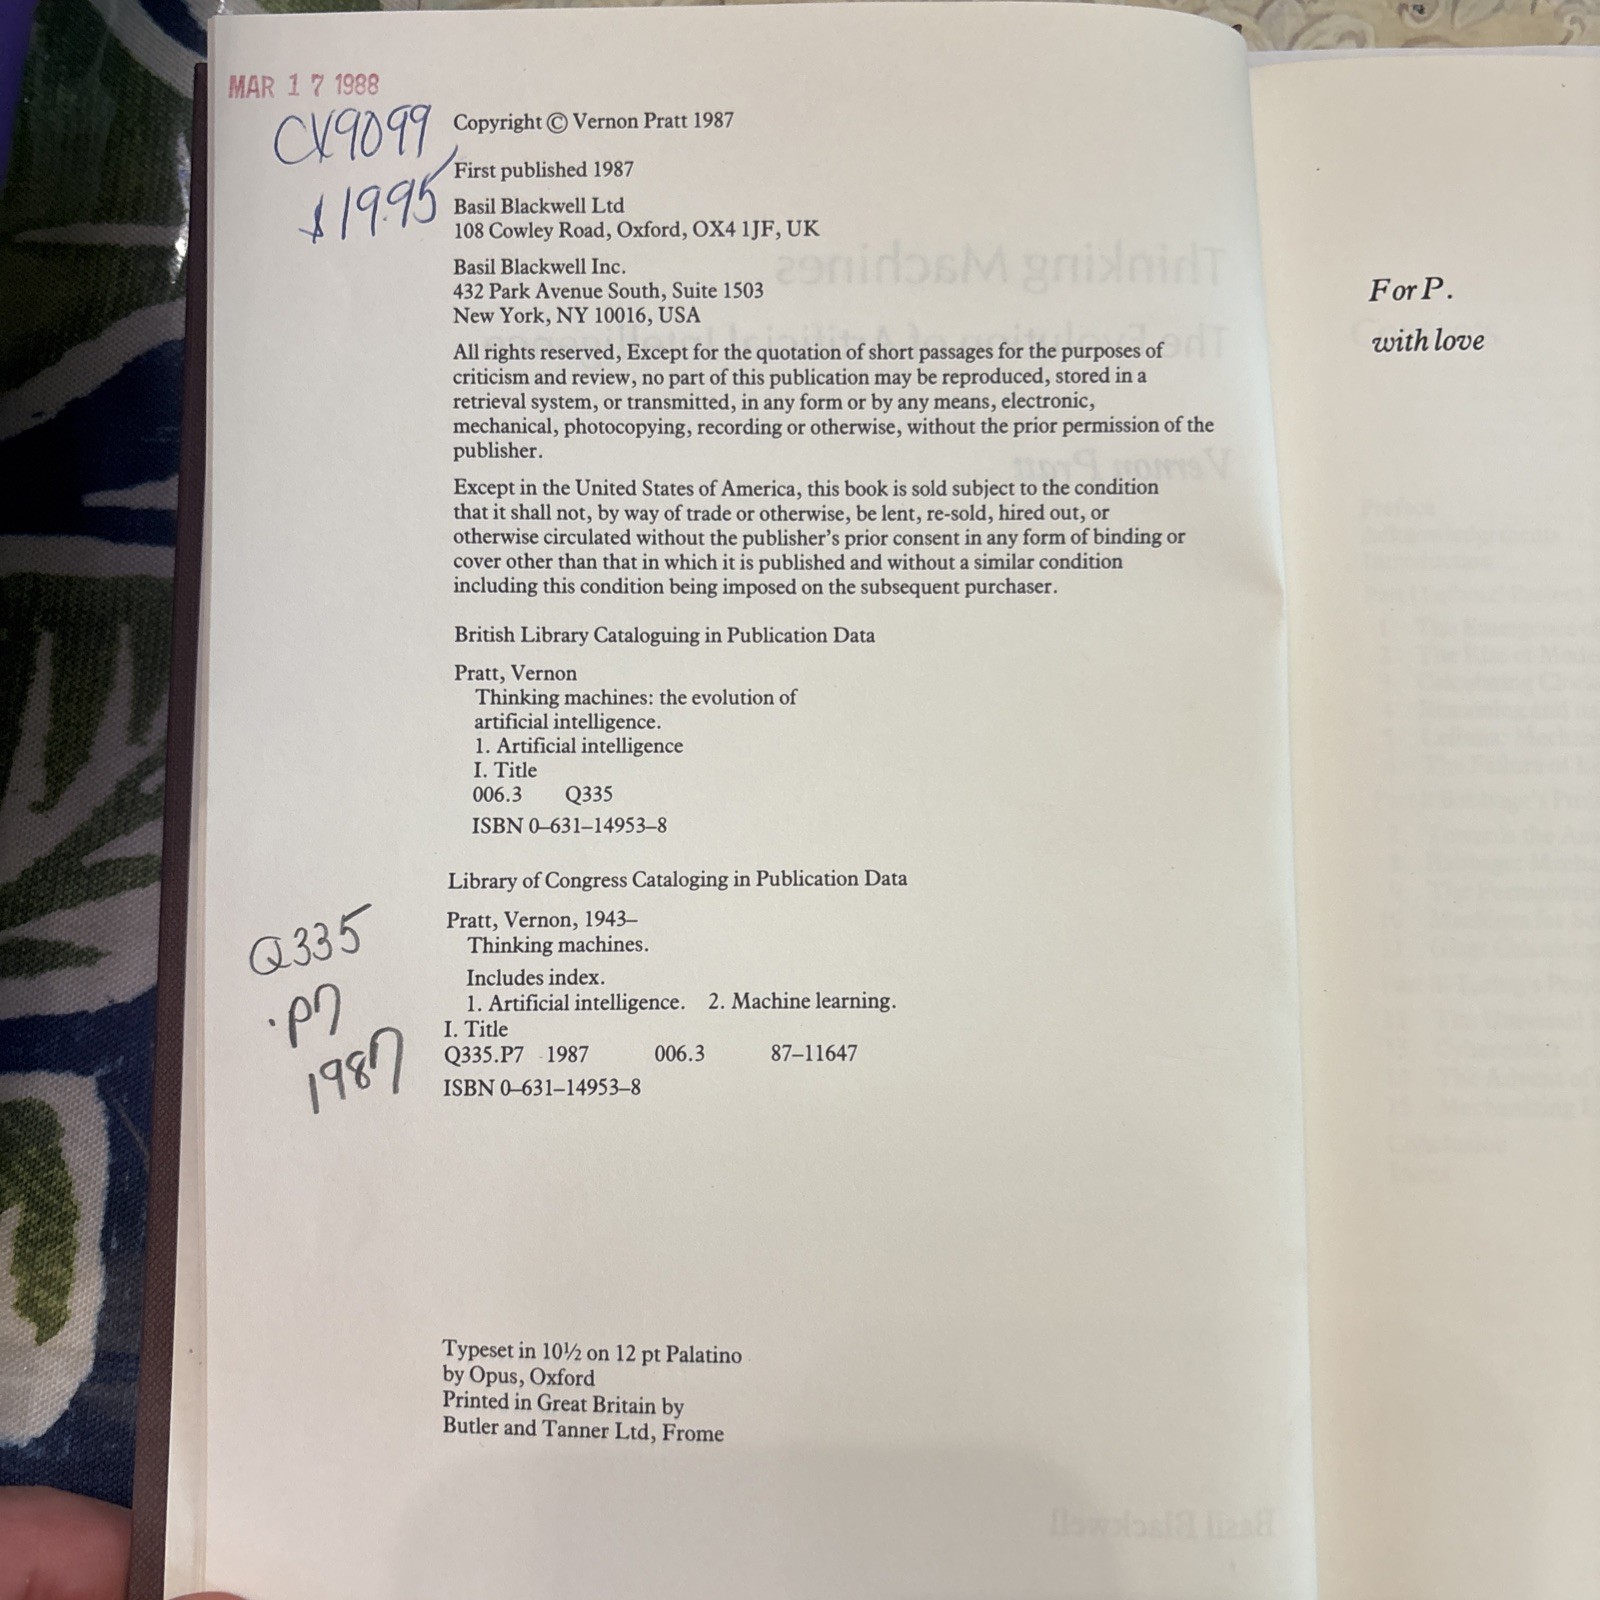 MAR 17 1988
CX9099
$19.95
Copyright © Vernon Pratt 1987
First published 1987
Basil Blackwell Ltd
108 Cowley Road, Oxford, OX4 1JF, UK
Basil Blackwell Inc.
432 Park Avenue South, Suite 1503
New York, NY 10016, USA
All rights reserved, Except for the quotation of short passages for the purposes of
criticism and review, no part of this publication may be reproduced, stored in a
retrieval system, or transmitted, in any form or by any means, electronic,
mechanical, photocopying, recording or otherwise, without the prior permission of the
publisher.
Except in the United States of America, this book is sold subject to the condition
that it shall not, by way of trade or otherwise, be lent, re-sold, hired out, or
otherwise circulated without the publisher's prior consent in any form of binding or
cover other than that in which it is published and without a similar condition
including this condition being imposed on the subsequent purchaser.
British Library Cataloguing in Publication Data
Pratt, Vernon
Thinking machines: the evolution of
artificial intelligence.
1. Artificial intelligence
I. Title
006.3 Q335
ISBN 0–631–14953–8
Library of Congress Cataloging in Publication Data
Pratt, Vernon, 1943–
Thinking machines.
Includes index.
1. Artificial intelligence. 2. Machine learning.
I. Title
Q335.P7 1987 006.3 87–11647
ISBN 0–631–14953–8
Q335
.P7
1987
Typeset in 10½ on 12 pt Palatino
by Opus, Oxford
Printed in Great Britain by
Butler and Tanner Ltd, Frome
For P.
with love